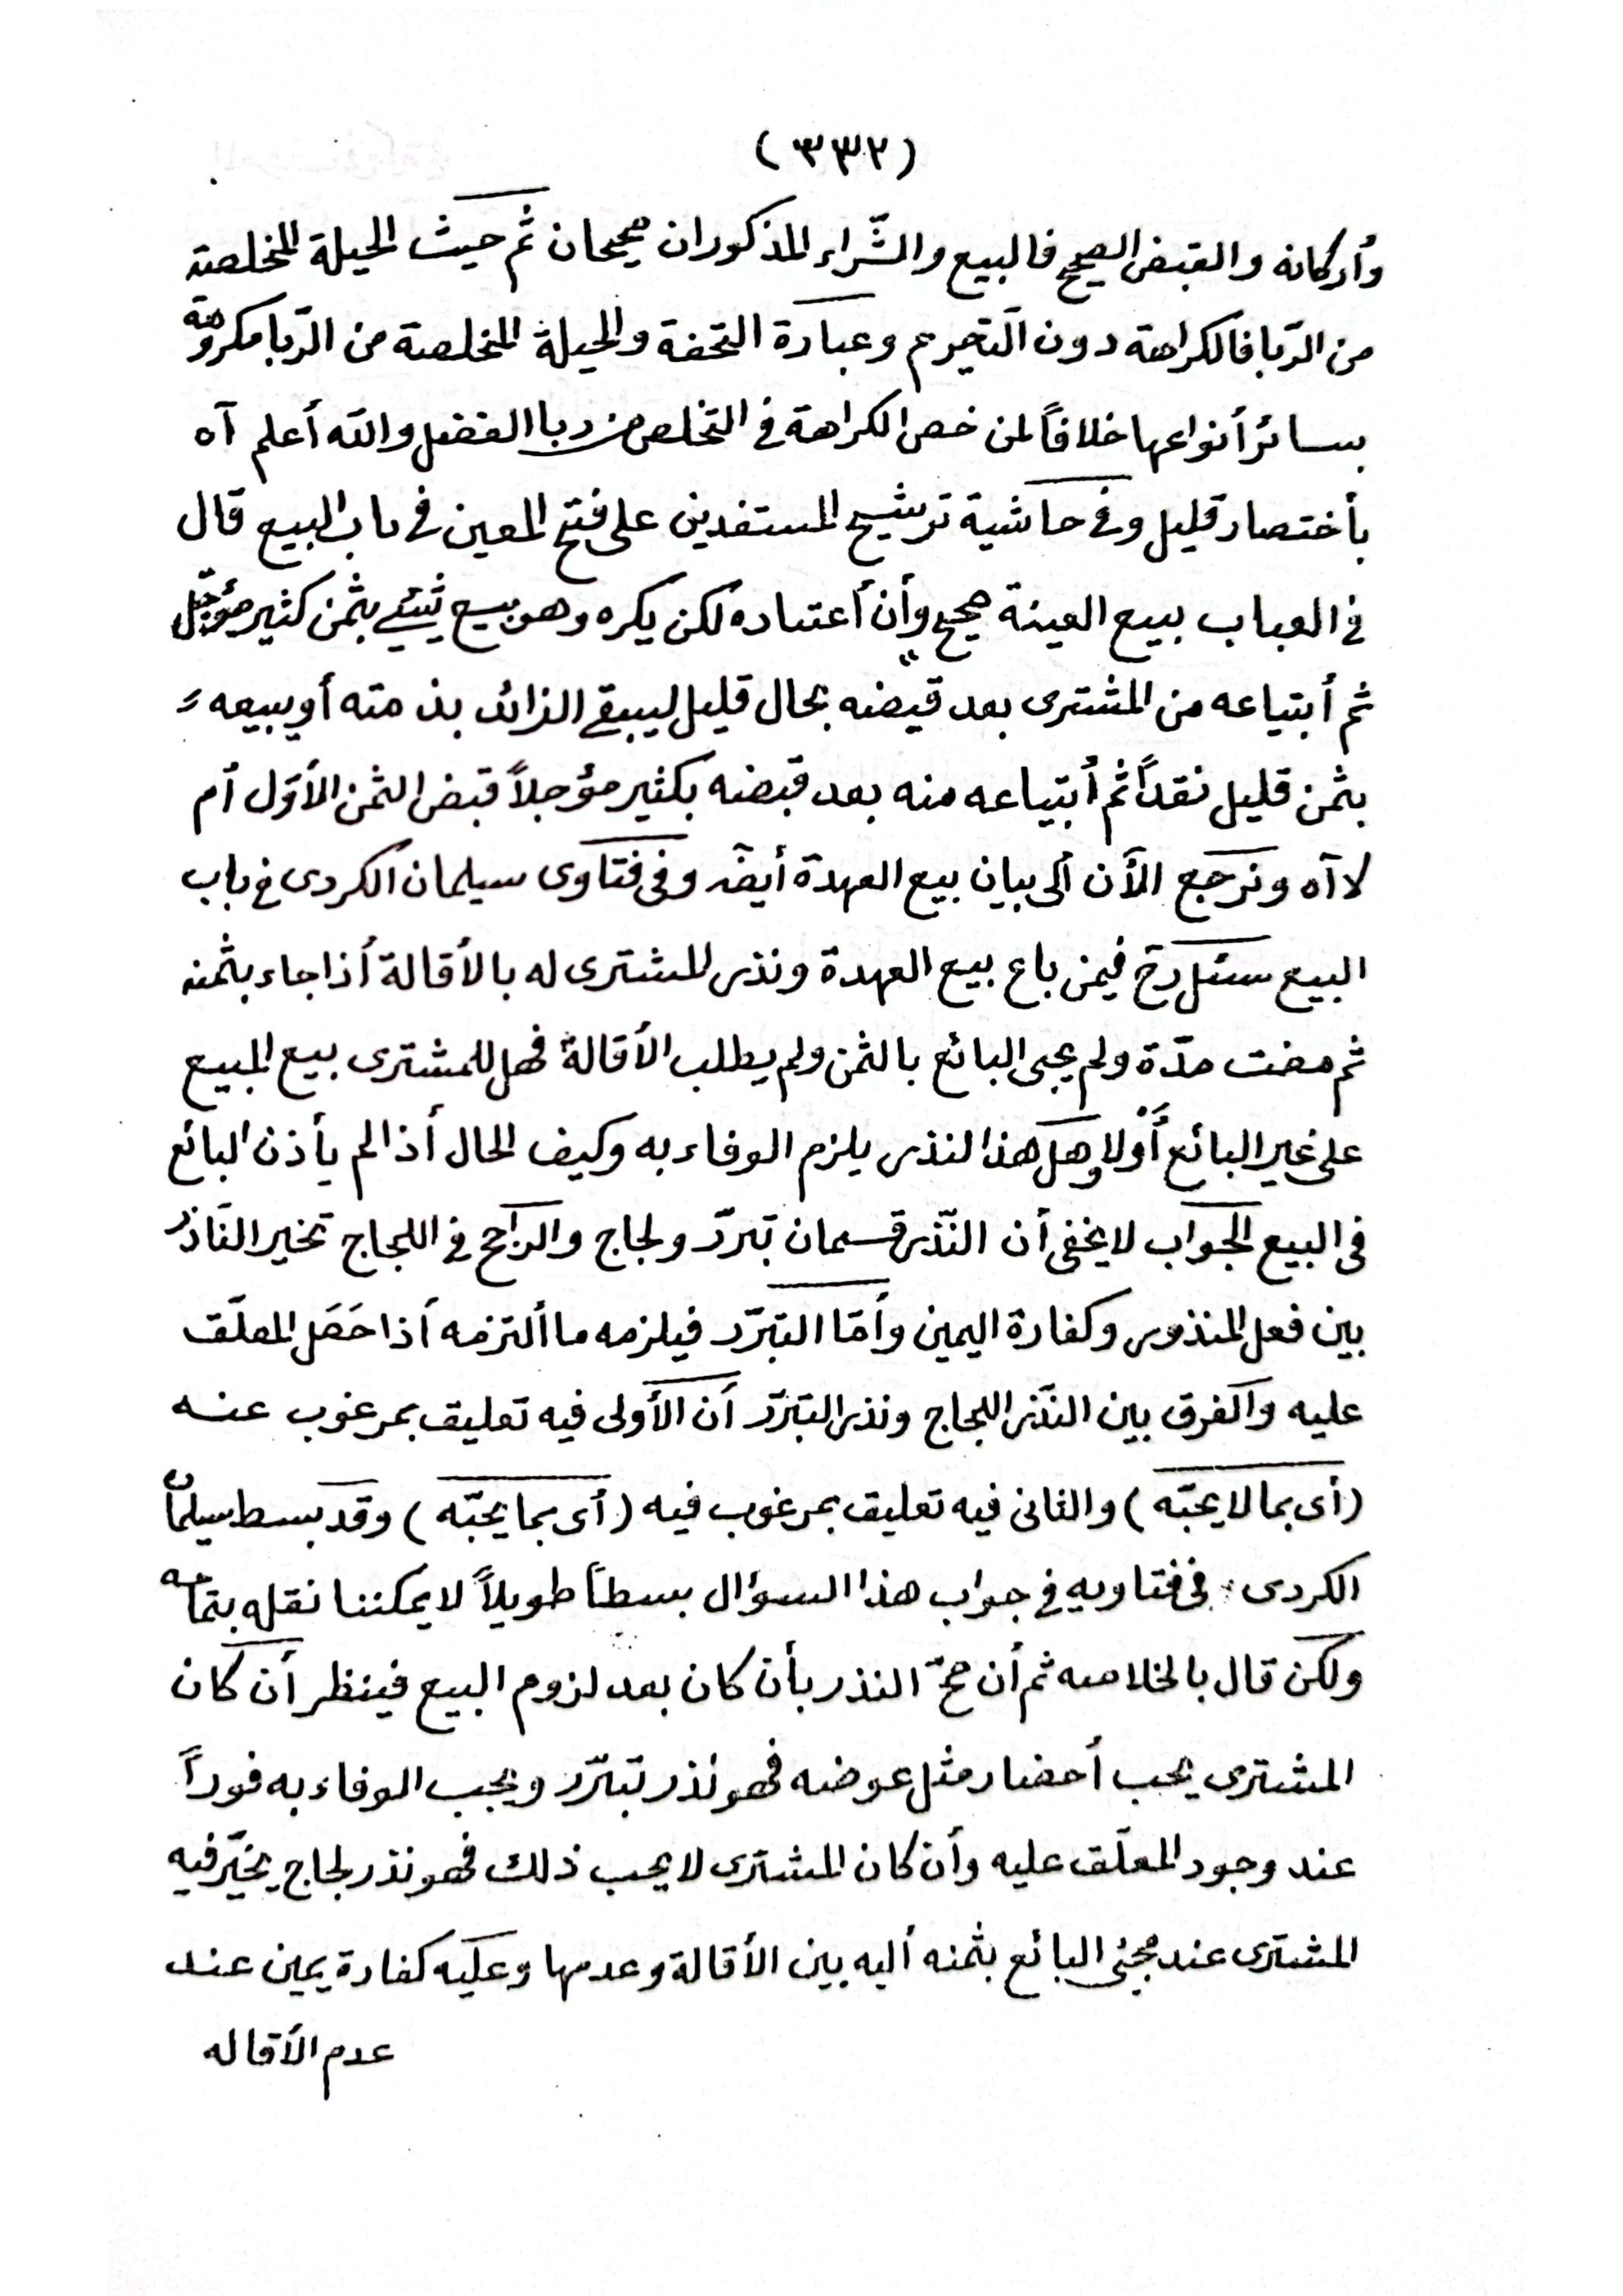 (٣٣٢)
وأركانه والقبض الصحيح فالبيع والشّراء المذكوران صحيحان ثم حيث الحيلة المخلصة
من الرّبا فالكراهة دون التحريم وعبارة التحفة والحيلة المخلصة من الرّبا مكروهة
بسائر أنواعها خلافاً لمن خص الكراهة في التخلص من ربا الفضل والله أعلم آه
بأختصار قليل وفي حاشية ترشيح المستفدين على فتح المعين في باب البيع قال
في العباب بيع العينة صحيح وأن أعتاده لكن يكره وهو بيع شيئ بثمن كثير مؤجّل
ثم أبتياعه من المشترى بعد قبضه بحال قليل ليبقى الزائد بذمته أو يبيعه
بثمن قليل نقداً ثم أبتياعه منه بعد قبضه بكثير مؤجلاً قبض الثمن الأوّل أم
لا آه ونرجع الأن ألى بيان بيع العهدة أيضً وفى فتاوى سيلمان الكردى في باب
البيع سئل رح فيمن باع بيع العهدة ونذر المشترى له بالأقالة أذا جاء بثمنه
ثم مضت مدّة ولم يجئ البائع بالثمن ولم يطلب الأقالة فهل للمشترى بيع المبيع
على غير البائع أَوْلا وهل هذا النذر يلزم الوفاء به وكيف الحال أذا لم يأذن البائع
فى البيع الجواب لا يخفى أن النّذر قسمان تبرّر ولجاج والراجح في اللجاج تخير النّاذر
بين فعل المنذور وكفارة اليمين وأمّا التبرّر فيلزمه ما ألتزمه أذا حَصَل المعلّق
عليه والفرق بين النّذر اللجاج ونذر التبرّر أن الأولى فيه تعليق بمرغوب عنه
(أى بما لا يحبّه) والثانى فيه تعليق بمرغوب فيه (أى بما يحبّه) وقد بسط سيلمان
الكردى فى فتاويه في جواب هذا السؤال بسطاً طويلاً لا يمكننا نقله بتمامه
ولكن قال بالخلاصه ثم أن صحّ النذر بأن كان بعد لزوم البيع فينظر أن كان
المشترى يحب أحضار مثل عوضه فهو نذر تبرّر ويجب الوفاء به فوراً
عند وجود المعلّق عليه وأن كان المشترى لا يحب ذلك فهو نذر لجاج يخيّر فيه
المشترى عند مجئ البائع بثمنه أليه بين الأقالة وعدمها وعليه كفارة يمين عند
عدم الأقاله